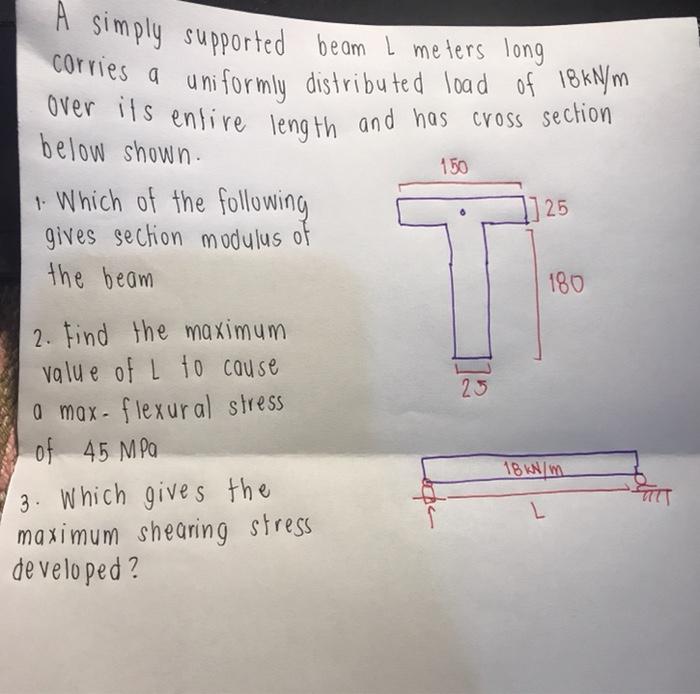 A simply supported beam L meters long
carries a uniformly distributed load of 18kN/m
over its entire length and has cross section
below shown.
150
1. Which of the following
gives section modulus of
the beam
25
180
2. Find the maximum
value of L to cause
a max. flexural stress
of 45 MPa
25
18 kN/m
L
3. Which gives the
maximum shearing stress
developed?